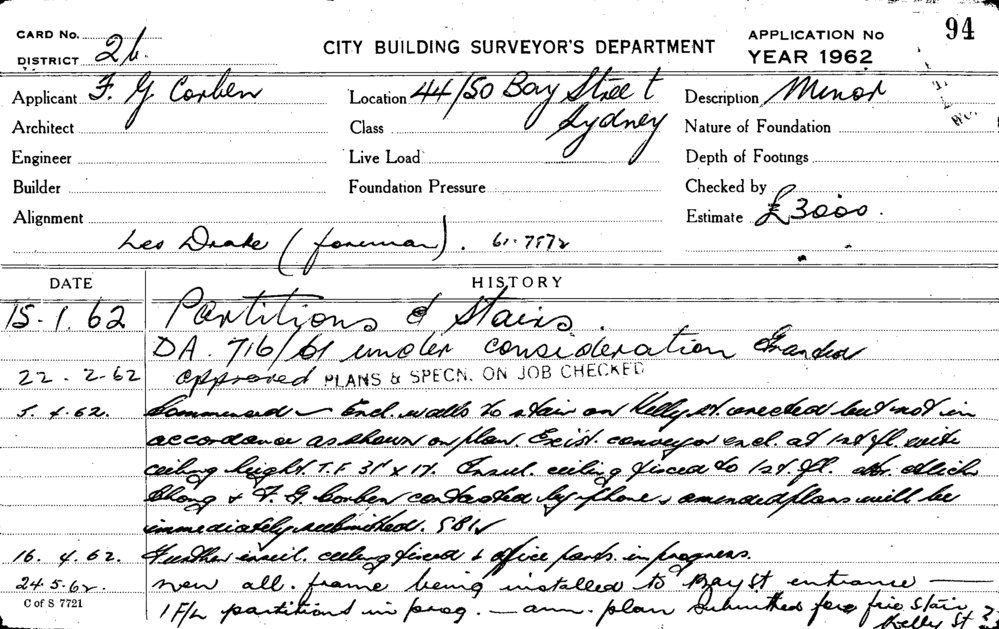 CARD No.
DISTRICT 26.
CITY BUILDING SURVEYOR'S DEPARTMENT
APPLICATION No 94
YEAR 1962
Applicant F. G Corben
Location 44/50 Bay Street
Sydney
Description Minor
Architect
Class
Nature of Foundation
Engineer
Live Load
Depth of Footings
Builder
Foundation Pressure
Checked by
Alignment
Estimate £3000.
Les Drake (foreman). 61-7572
DATE
HISTORY
15-1.62 Partitions & Stairs.
DA. 716/61 under consideration Granted
22.2-62 approved PLANS & SPECN. ON JOB CHECKED
5.4.62. Commenced – Encl. walls to stair on Kelly St. erected but not in
accordance as shown on plan. Exist. conveyor encl. at 1st fl. with
ceiling height. T.F 31' x 17. Insul. ceiling fixed to 1st. fl. Mr.
Chong & F. G Corben contacted by phone & amended plans will be
immediately submitted.
16. 4.62. Further insul. ceiling fixed & office parts. in progress.
24.5.62. new all. frame being installed to Bay St entrance —
1 F/L partitions in prog. — am. plan submitted for fire stair
Kelly St
C of S 7721